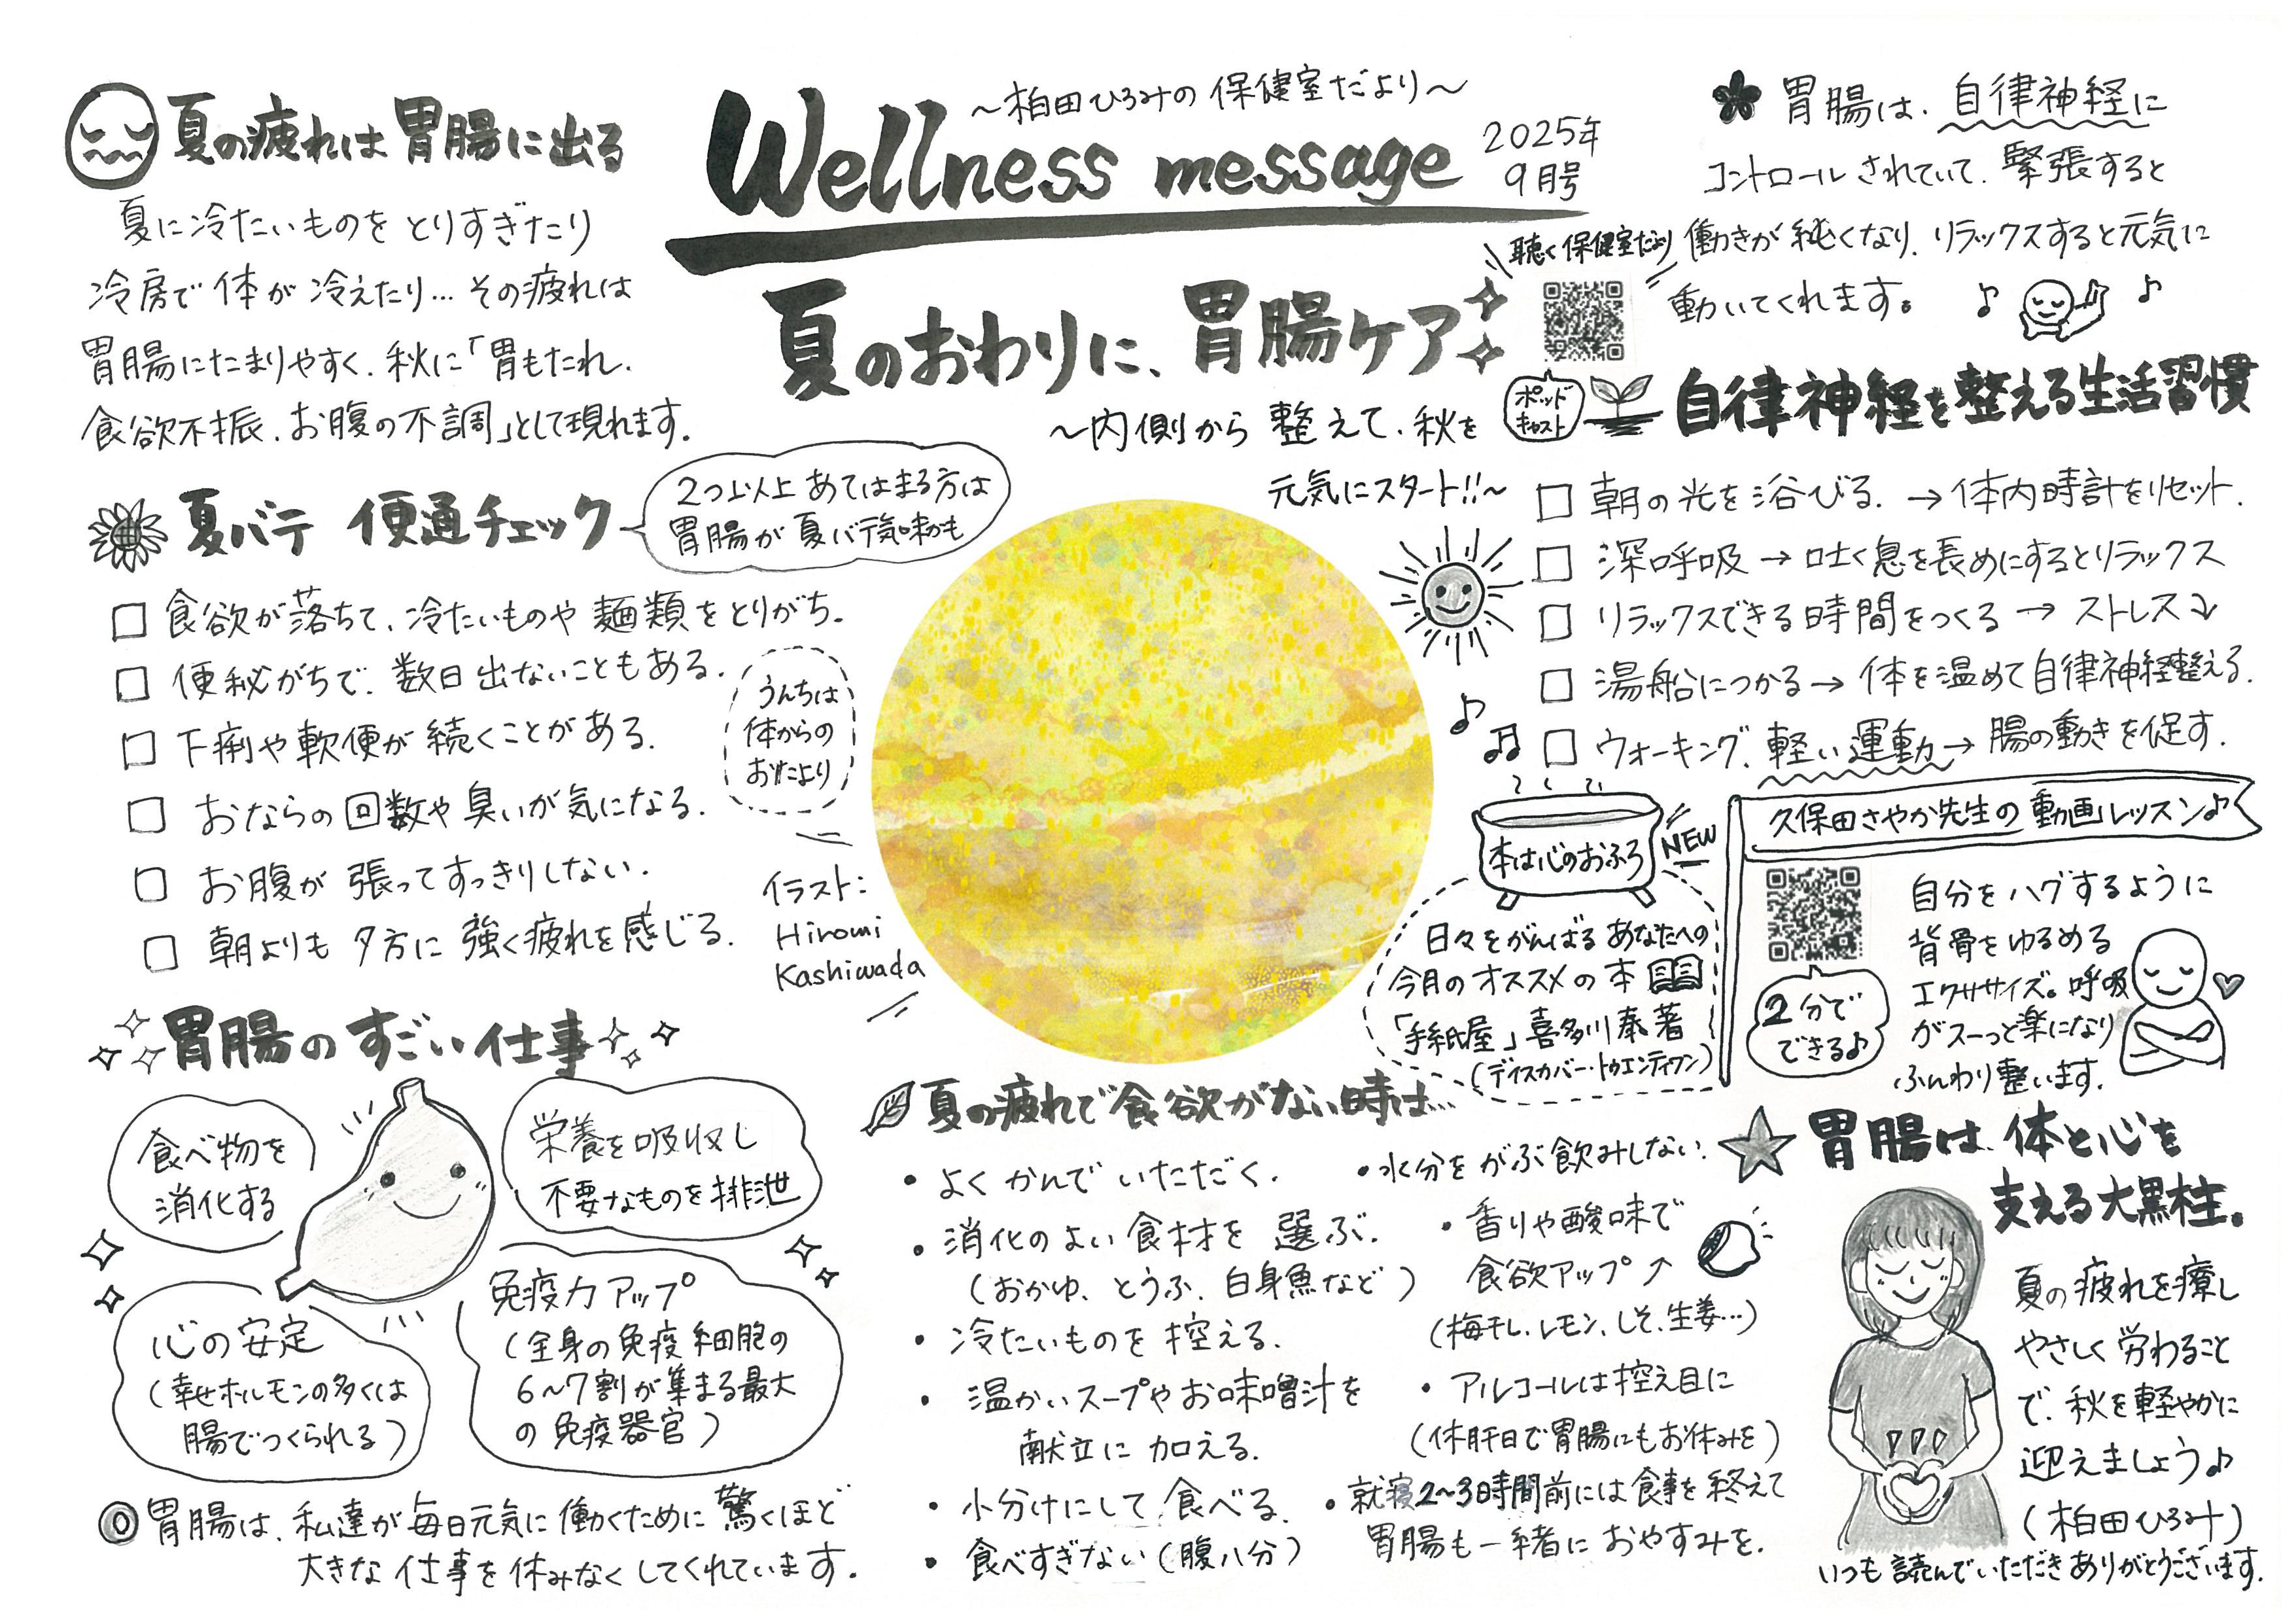 ～柏田ひろみの保健室だより～
Wellness message
2025年
9月号
夏のおわりに、胃腸ケア
～内側から整えて、秋を
元気にスタート!!～
聴く保健室だより
ポッド
キャスト
夏の疲れは胃腸に出る
夏に冷たいものをとりすぎたり
冷房で体が冷えたり…その疲れは
胃腸にたまりやすく、秋に「胃もたれ、
食欲不振、お腹の不調」として現れます。
夏バテ 便通チェック
2つ以上あてはまる方は
胃腸が夏バテ気味かも
□ 食欲が落ちて、冷たいものや麺類をとりがち。
□ 便秘がちで、数日出ないこともある。
□ 下痢や軟便が続くことがある。
□ おならの回数や臭いが気になる。
□ お腹が張ってすっきりしない。
□ 朝よりも夕方に強く疲れを感じる。
うんちは
体からの
おたより
イラスト:
Hiromi
Kashiwada
胃腸のすごい仕事
食べ物を
消化する
栄養を吸収し
不要なものを排泄
心の安定
(幸せホルモンの多くは
腸でつくられる)
免疫力アップ
(全身の免疫細胞の
6～7割が集まる最大
の免疫器官)
◎胃腸は、私達が毎日元気に働くために驚くほど
大きな仕事を休みなくしてくれています。
夏の疲れで食欲がない時は…
・よくかんでいただく。
・消化のよい食材を選ぶ。
(おかゆ、とうふ、白身魚など)
・冷たいものを控える。
・温かいスープやお味噌汁を
献立に加える。
・小分けにして食べる。
・食べすぎない(腹八分)
・水分をがぶ飲みしない。
・香りや酸味で
食欲アップ↗
(梅干し、レモン、しそ、生姜…)
・アルコールは控え目に
(休肝日で胃腸にもお休みを)
・就寝2～3時間前には食事を終えて
胃腸も一緒におやすみを。
胃腸は、自律神経に
コントロールされていて、緊張すると
働きが鈍くなり、リラックスすると元気に
動いてくれます。
自律神経を整える生活習慣
□ 朝の光を浴びる。→体内時計をリセット。
□ 深呼吸→吐く息を長めにするとリラックス
□ リラックスできる時間をつくる→ストレス↘
□ 湯船につかる→体を温めて自律神経整える。
□ ウォーキング、軽い運動→腸の動きを促す。
本は心のおふろ
NEW
日々をがんばるあなたへの
今月のオススメの本
「手紙屋」喜多川泰著
(ディスカバー・トゥエンティワン)
久保田さやか先生の動画レッスン♪
2分で
できる♪
自分をハグするように
背骨をゆるめる
エクササイズ。呼吸
がスーっと楽になり
ふんわり整います。
胃腸は、体と心を
支える大黒柱。
夏の疲れを癒し
やさしく労わること
で、秋を軽やかに
迎えましょう♪
(柏田ひろみ)
いつも読んでいただきありがとうございます。